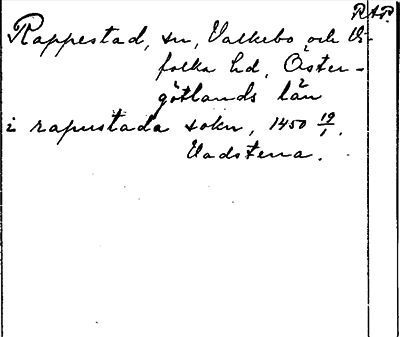 R.A.P.
Rappestad, sn, Valkebo och Vi-
folka hd, Öster-
götlands län
i rapustada sokn, 1450 19/1.
Vadstena.